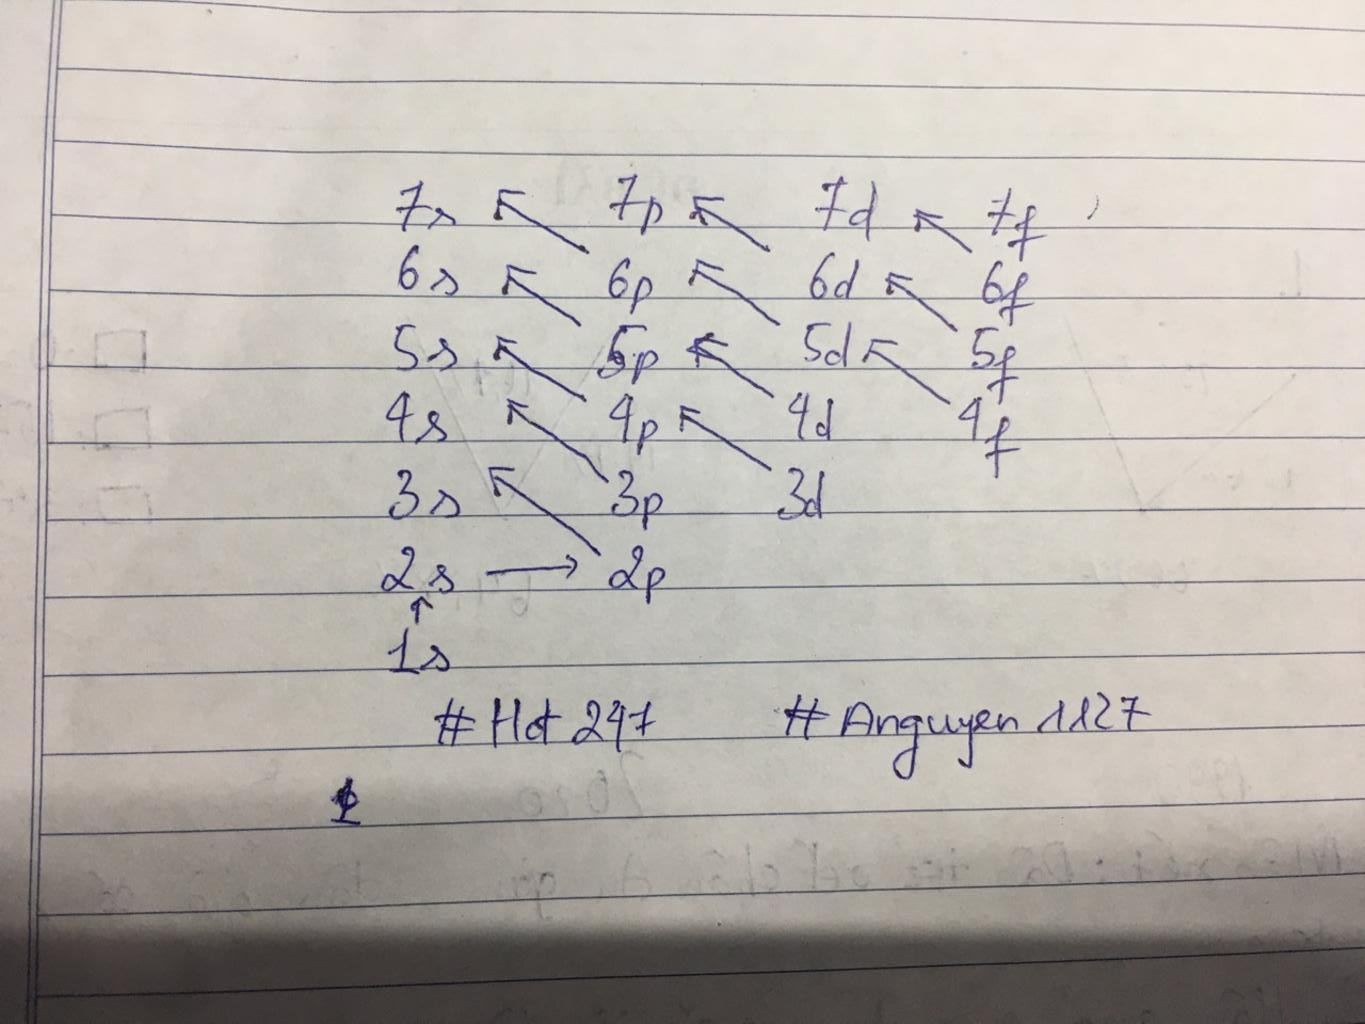 7s ↖ 7p ↖ 7d ↖ 7f
6s ↖ 6p ↖ 6d ↖ 6f
5s ↖ 5p ↖ 5d ↖ 5f
4s ↖ 4p ↖ 4d 4f
3s ↖ 3p 3d
2s → 2p
↑
1s
#Hot 247 #Anguyen 1127